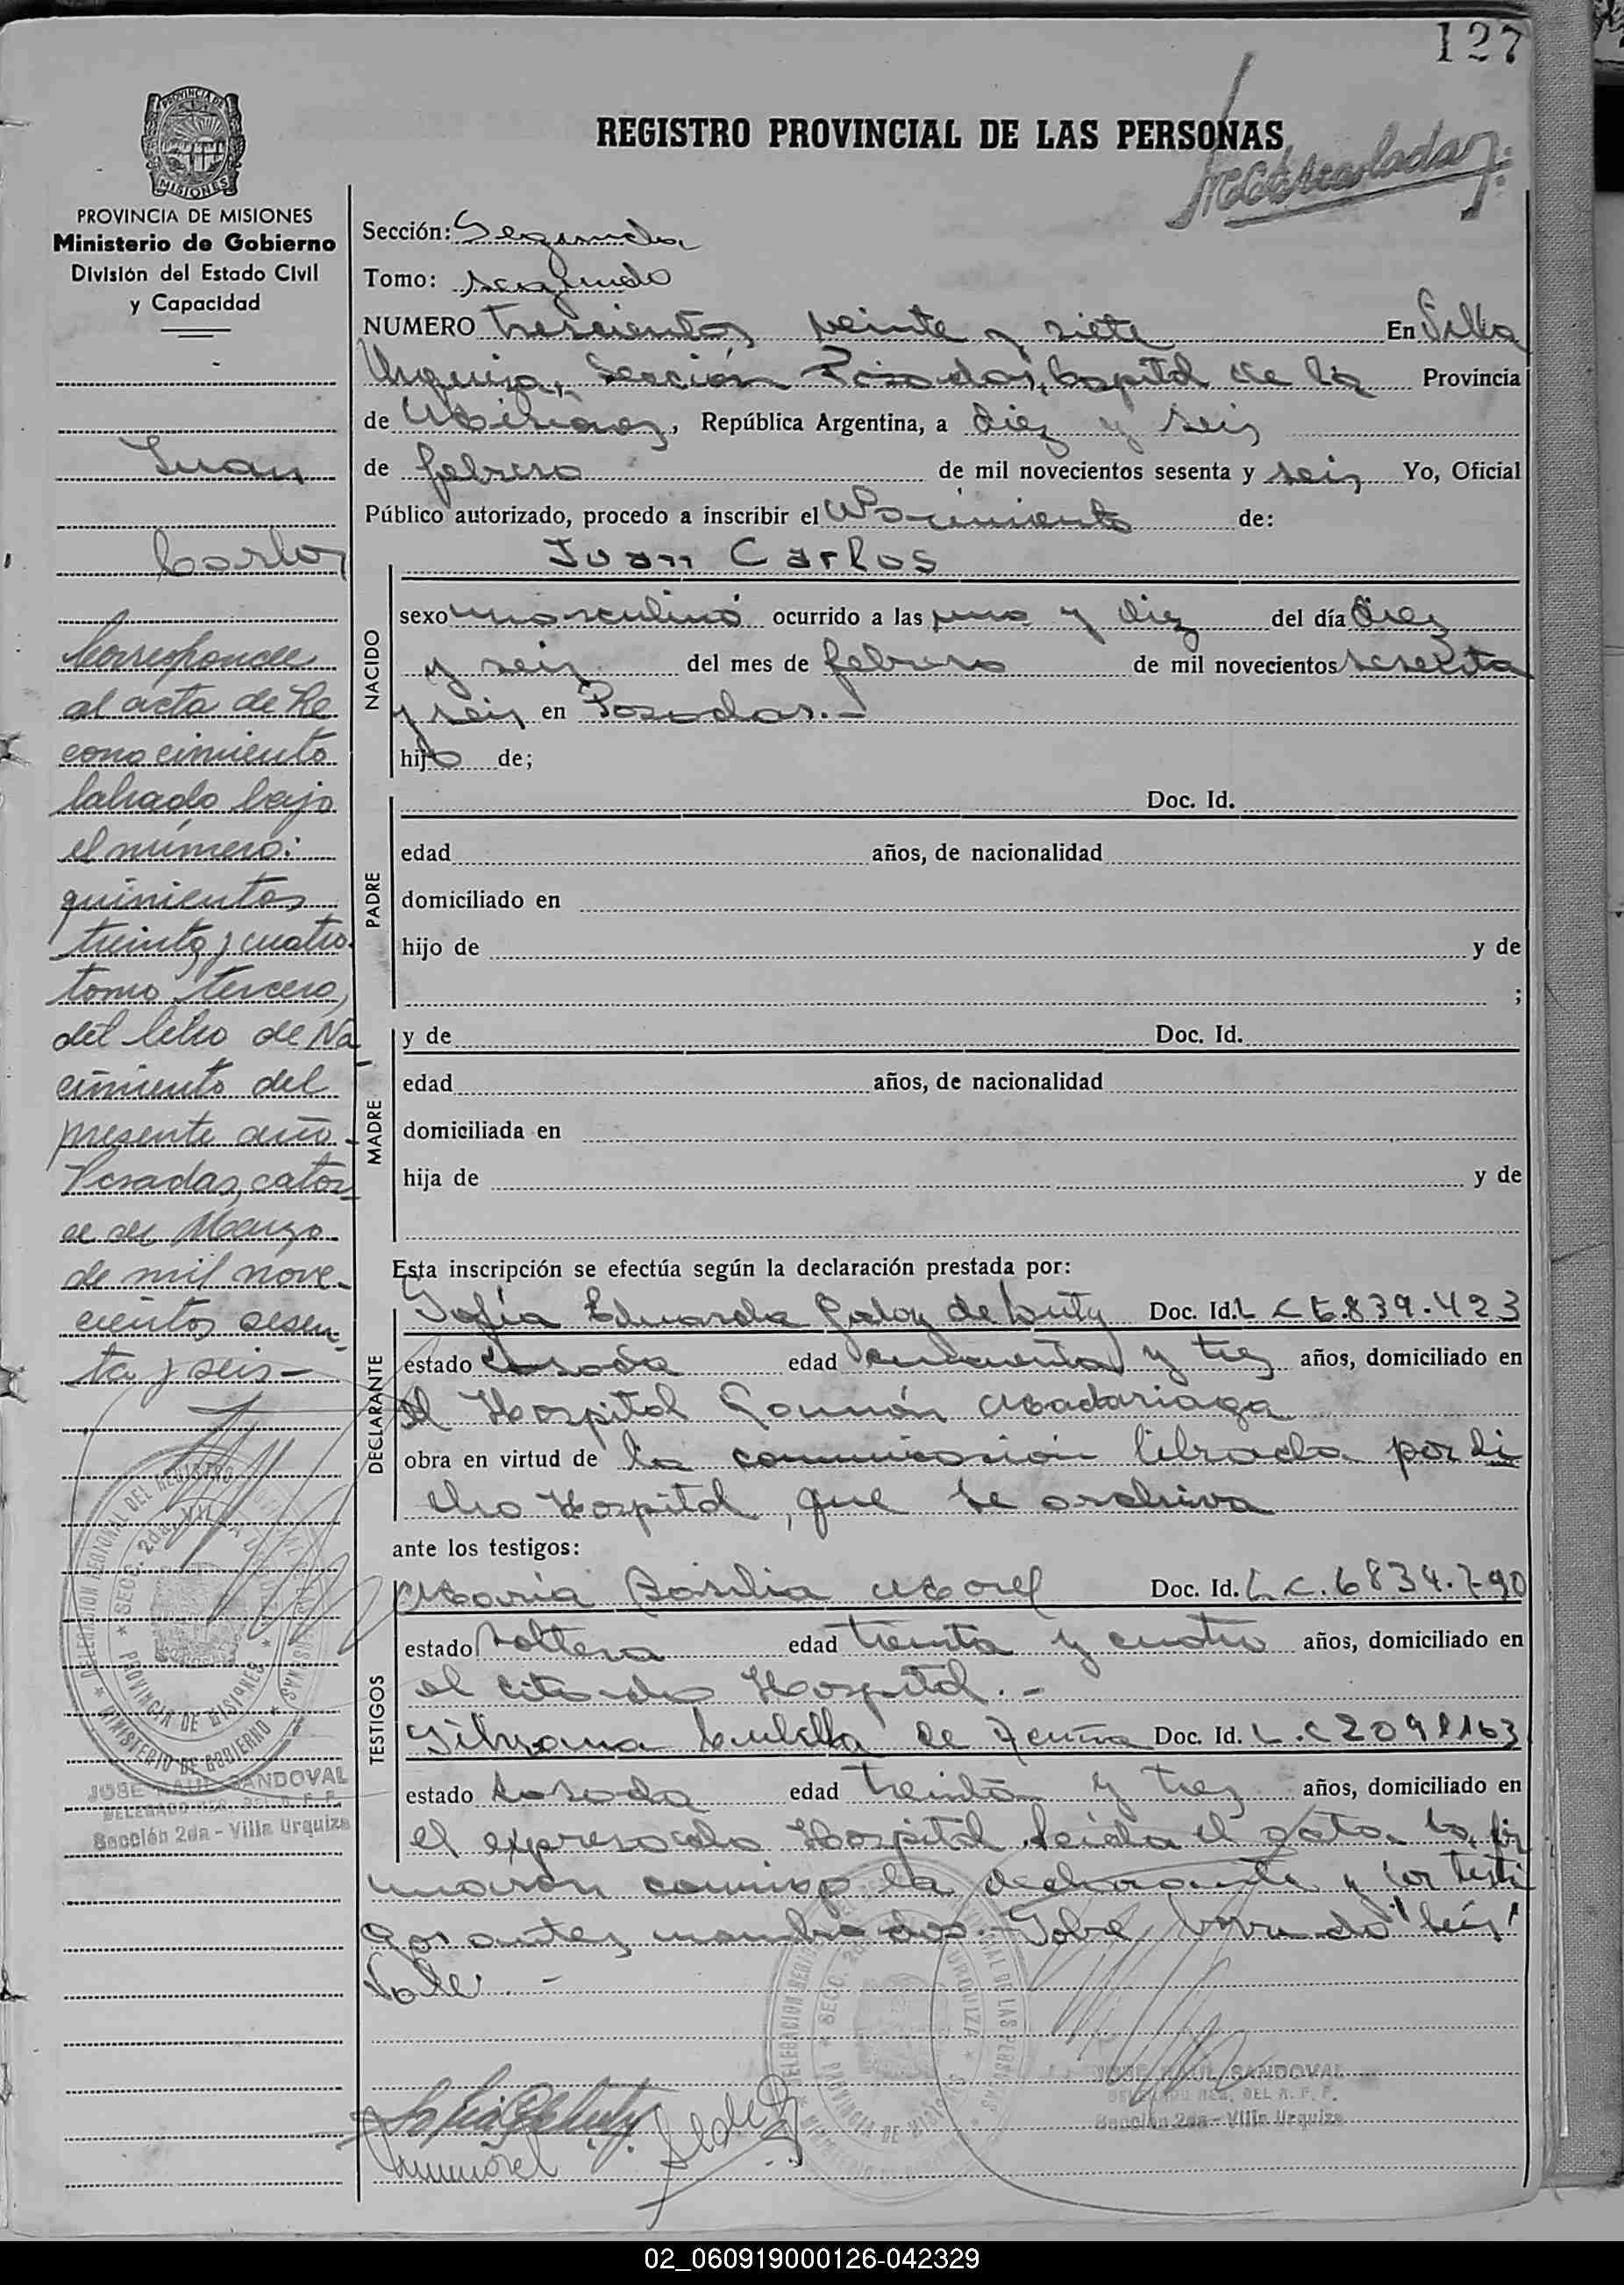 127
REGISTRO PROVINCIAL DE LAS PERSONAS
PROVINCIA DE MISIONES
PROVINCIA DE MISIONES
Ministerio de Gobierno
División del Estado Civil
y Capacidad
Juan
Carlos
Corresponde
al acta de Re
conocimiento
labrado bajo
el número:
quinientos
treinta y cuatro
tomo tercero,
del libro de Na
cimiento del
presente año.-
Posadas, cator
ce de Marzo
de mil nove-
cientos sesen-
ta y seis-
DELEGACION REGIONAL DEL REGISTRO PROVINCIAL DE LAS PERSONAS
SECC. 2da. VILLA URQUIZA
PROVINCIA DE MISIONES
MINISTERIO DE GOBIERNO
JOSE RAUL SANDOVAL
DELEGADO REG. DEL R. P. P.
Sección 2da - Villa Urquiza
Sección: Segunda
Tomo: segundo
NUMERO trescientos veinte y siete En Villa
Urquiza, Sección Posadas, Capital de la Provincia
de Misiones, República Argentina, a diez y seis
de febrero de mil novecientos sesenta y seis Yo, Oficial
Público autorizado, procedo a inscribir el Nacimiento de:
Juan Carlos
NACIDO
sexo masculino ocurrido a las una y diez del día diez
y seis del mes de febrero de mil novecientos sesenta
y seis en Posadas.-
hijo de;
PADRE
Doc. Id.
edad años, de nacionalidad
domiciliado en
hijo de y de
;
MADRE
y de Doc. Id.
edad años, de nacionalidad
domiciliada en
hija de y de
Esta inscripción se efectúa según la declaración prestada por:
DECLARANTE
Sofía Eduarda de Doc. Id. L C 6.839.423
estado casada edad cincuenta y tres años, domiciliado en
el Hospital Ramón Madariaga
obra en virtud de la comunicación librada por di
cho Hospital, que se archiva
ante los testigos:
TESTIGOS
María Basilia Morel Doc. Id. L.C. 6834.790
estado soltera edad treinta y cuatro años, domiciliado en
el citado Hospital.-
Silvana Cubilla de Doc. Id. L.C 2098163
estado casada edad treinta y tres años, domiciliado en
el expresado Hospital. Leída el acta, la fir
maron conmigo la declarante y los testi
gos antes nombrados.- Sobre borrado "seis"
Vale.-
DELEGACION REGIONAL DEL REGISTRO PROVINCIAL DE LAS PERSONAS
SECC. 2da. VILLA URQUIZA
PROVINCIA DE MISIONES
MINISTERIO DE GOBIERNO
JOSE RAUL SANDOVAL
DELEGADO REG. DEL R. P. P.
Sección 2da - Villa Urquiza
02_060919000126-042329